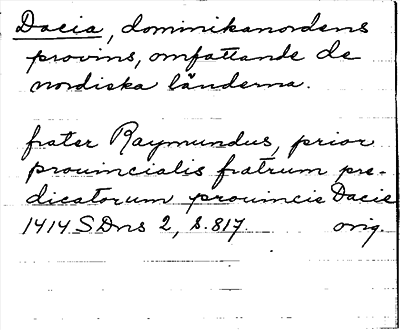 Dacia, dominikanordens
provins, omfattande de
nordiska länderna.
frater Raymundus, prior
prouincialis fratrum pre-
dicatorum prouincie Dacie
1414 SDns 2, s. 817. orig.